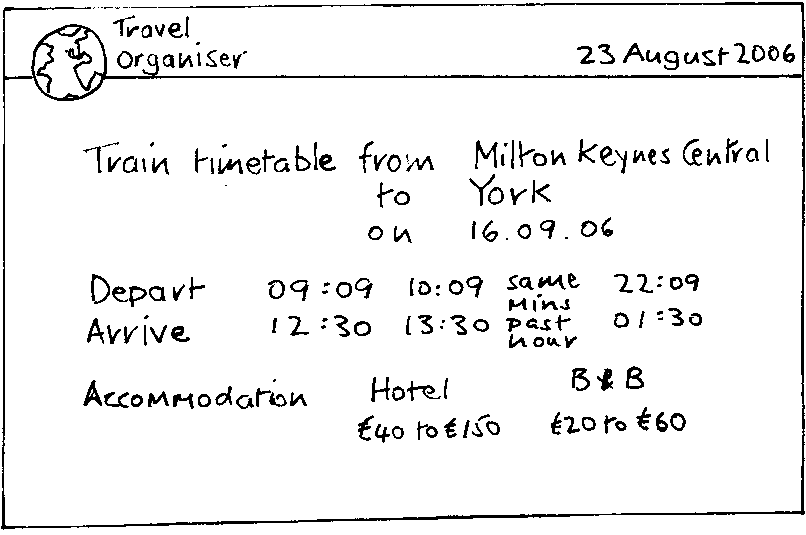 Travel
Organiser
23 August 2006
Train timetable from Milton Keynes Central
to York
on 16.09.06
Depart 09:09 10:09 same 22:09
mins
Arrive 12:30 13:30 past 01:30
hour
Accommodation Hotel B & B
€40 to €150 €20 to €60